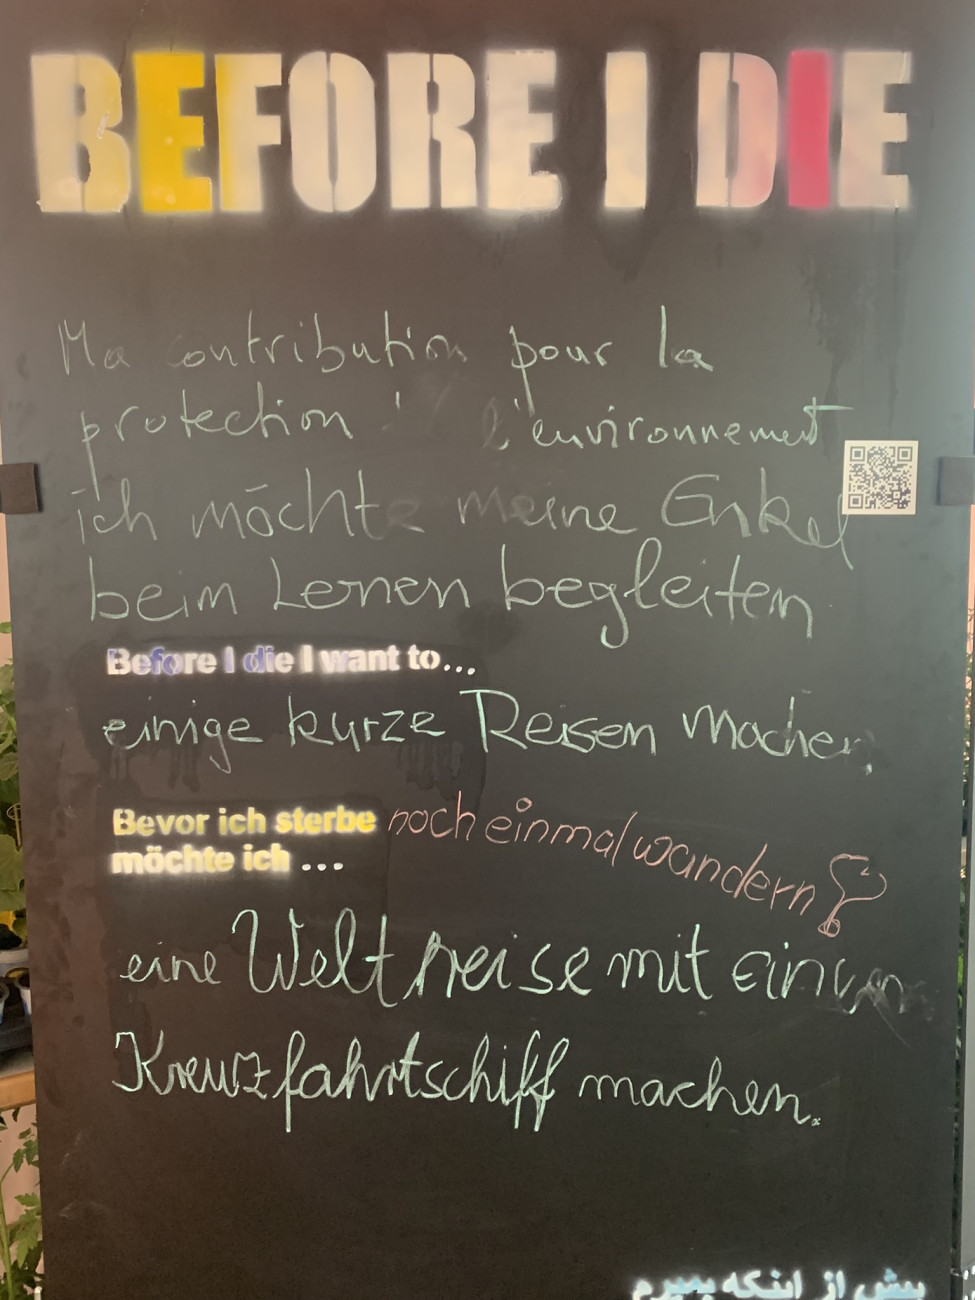 BEFORE I DIE
Ma contribution pour la
protection l'environnement
ich möchte meine Enkel
beim Lernen begleiten
Before I die I want to...
einige kurze Reisen machen
Bevor ich sterbe noch einmal wandern
möchte ich ...
eine Weltreise mit einem
Kreuzfahrtschiff machen.
پیش از اینکه بمیرم